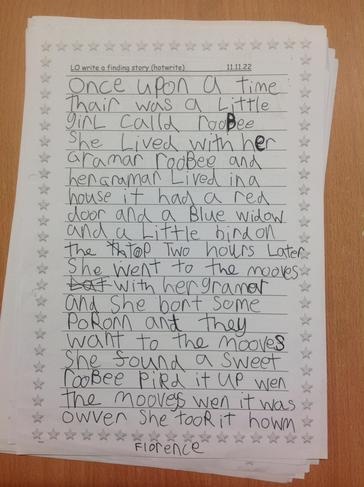 LO write a finding story (hotwrite) 11.11.22
Once upon a time
Thair was a Little
girl calld rooBee
She Lived with her
Gramar rooBee and
her gramar Lived in a
house it had a red
door and a Blue widow
and a Little bird on
the top Two hours Later
She went to the mooves
bat with her gramer
and She bont Some
PoRonn and they
want to the mooves
She found a sweet
rooBee PiRd it uP wen
the mooves wen it was
owver She tooR it howm
Florence